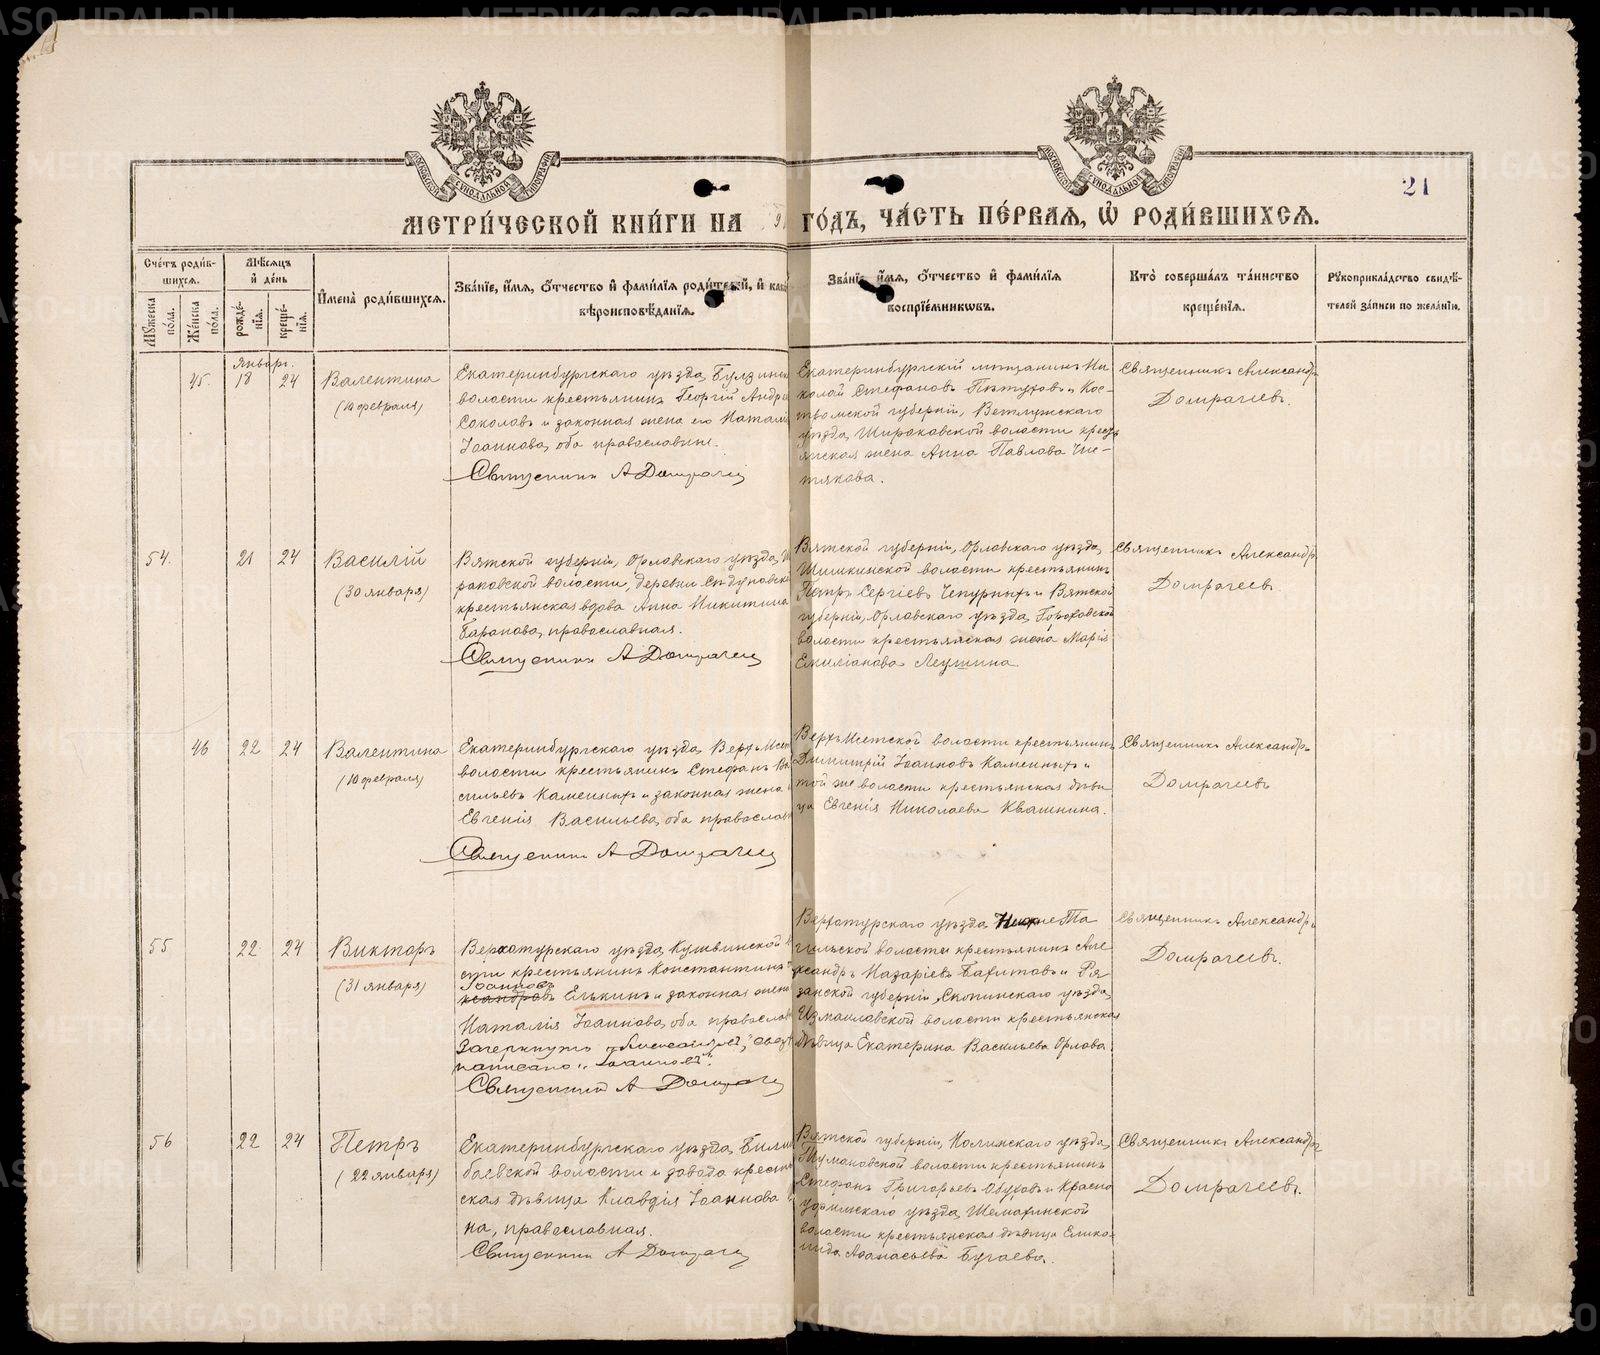 21
МЕТРИ́ЧЕСКОЙ КНИ́ГИ НА ГО́ДЪ, ЧА́СТЬ ПЕ́РВАЯ, Ѽ РОДИ́ВШИХСЯ.
Сче́тъ роди́в-
шихся.
Мꙋ́жеска по́ла.
Же́нска по́ла.
Мѣ́сяцъ
и҆ де́нь
рожде́-
нїя.
креще́-
нїя.
И҆мена̀ роди́вшихся.
Зва́нїе, и҆́мя, ѻ҆́тчество и҆ фами́лїя роди́телей, и҆
вѣроисповѣ́данїя.
Зва́нїе, и҆́мя, ѻ҆́тчество и҆ фами́лїя
воспрїе́мниковъ.
Кто̀ соверша́лъ та́инство
креще́нїя.
Рꙋкоприкла́дство свидѣ́-
телей за́писи по жела́нїю.
Январь.
45. 18 24
Валентина
(10 февраля)
Екатеринбургскаго уѣзда,
волости крестьянинъ Георгій
Соколовъ и законная жена его
Іоаннова, оба православные.
Священникъ А Домрачевъ
Екатеринбургскій мѣщанинъ Ни-
колай Стефановъ Пѣтуховъ и Кос-
тромской губерніи, Ветлужскаго
уѣзда, Широковской волости кресть-
янская жена Анна Павлова Чис-
тякова.
Священникъ Александръ
Домрачевъ.
54. 21 24
Василій
(30 января)
Вятской губерніи, Орловскаго уѣзда,
раковской волости, деревни
крестьянская вдова Анна Никитина
Баранова, православная.
Священникъ А Домрачевъ
Вятской губерніи, Орловскаго уѣзда,
Шишкинской волости крестьянинъ
Петръ Сергіевъ Чепурныхъ и Вятской
губерніи, Орловскаго уѣзда,
волости крестьянская жена Марія
Емиліанова Леушина
Священникъ Александръ
Домрачевъ.
46 22 24
Валентина
(10 февраля)
Екатеринбургскаго уѣзда, Верхъ-Исет
волости крестьянинъ Стефанъ Ва
сильевъ Каменныхъ и законная жена
Евгенія Васильева, оба православ
Священникъ А Домрачевъ
Верхъ-Исетской волости крестьянинъ
Димитрій Іоанновъ Каменныхъ и
той же волости крестьянская дѣви
ца Евгенія Николаева Квашнина.
Священникъ Александръ
Домрачевъ
55 22 24
Викторъ
(31 января)
Верхотурскаго уѣзда, Кушвинской
сти крестьянинъ Константинъ
Іоанновъ
ксандровъ Елькинъ и законная жена
Наталія Іоаннова, оба православ
Зачеркнуто „Александровъ",
написано „Іоанновъ".
Священникъ А Домрачевъ
Верхотурскаго уѣзда, Нижне Та
гильской волости крестьянинъ Але
ксандръ Назаріевъ и Ря
занской губерніи, Скопинскаго уѣзда,
Измаиловской волости крестьянская
дѣвица Екатерина Васильева Орлова.
Священникъ Александръ
Домрачевъ.
56 22 24
Петръ
(22 января)
Екатеринбургскаго уѣзда, Билим
баевской волости и завода крестьян
ская дѣвица Клавдія Іоаннова
на, православная.
Священникъ А Домрачевъ
Вятской губерніи, Нолинскаго уѣзда,
волости крестьянинъ
Стефанъ Григорьевъ Обуховъ и Красно
уфимскаго уѣзда, Шемахинской
волости крестьянская дѣвица Елико-
нида Аѳанасьева Бугаева.
Священникъ Александръ
Домрачевъ.
METRIKI.GASO-URAL.RU